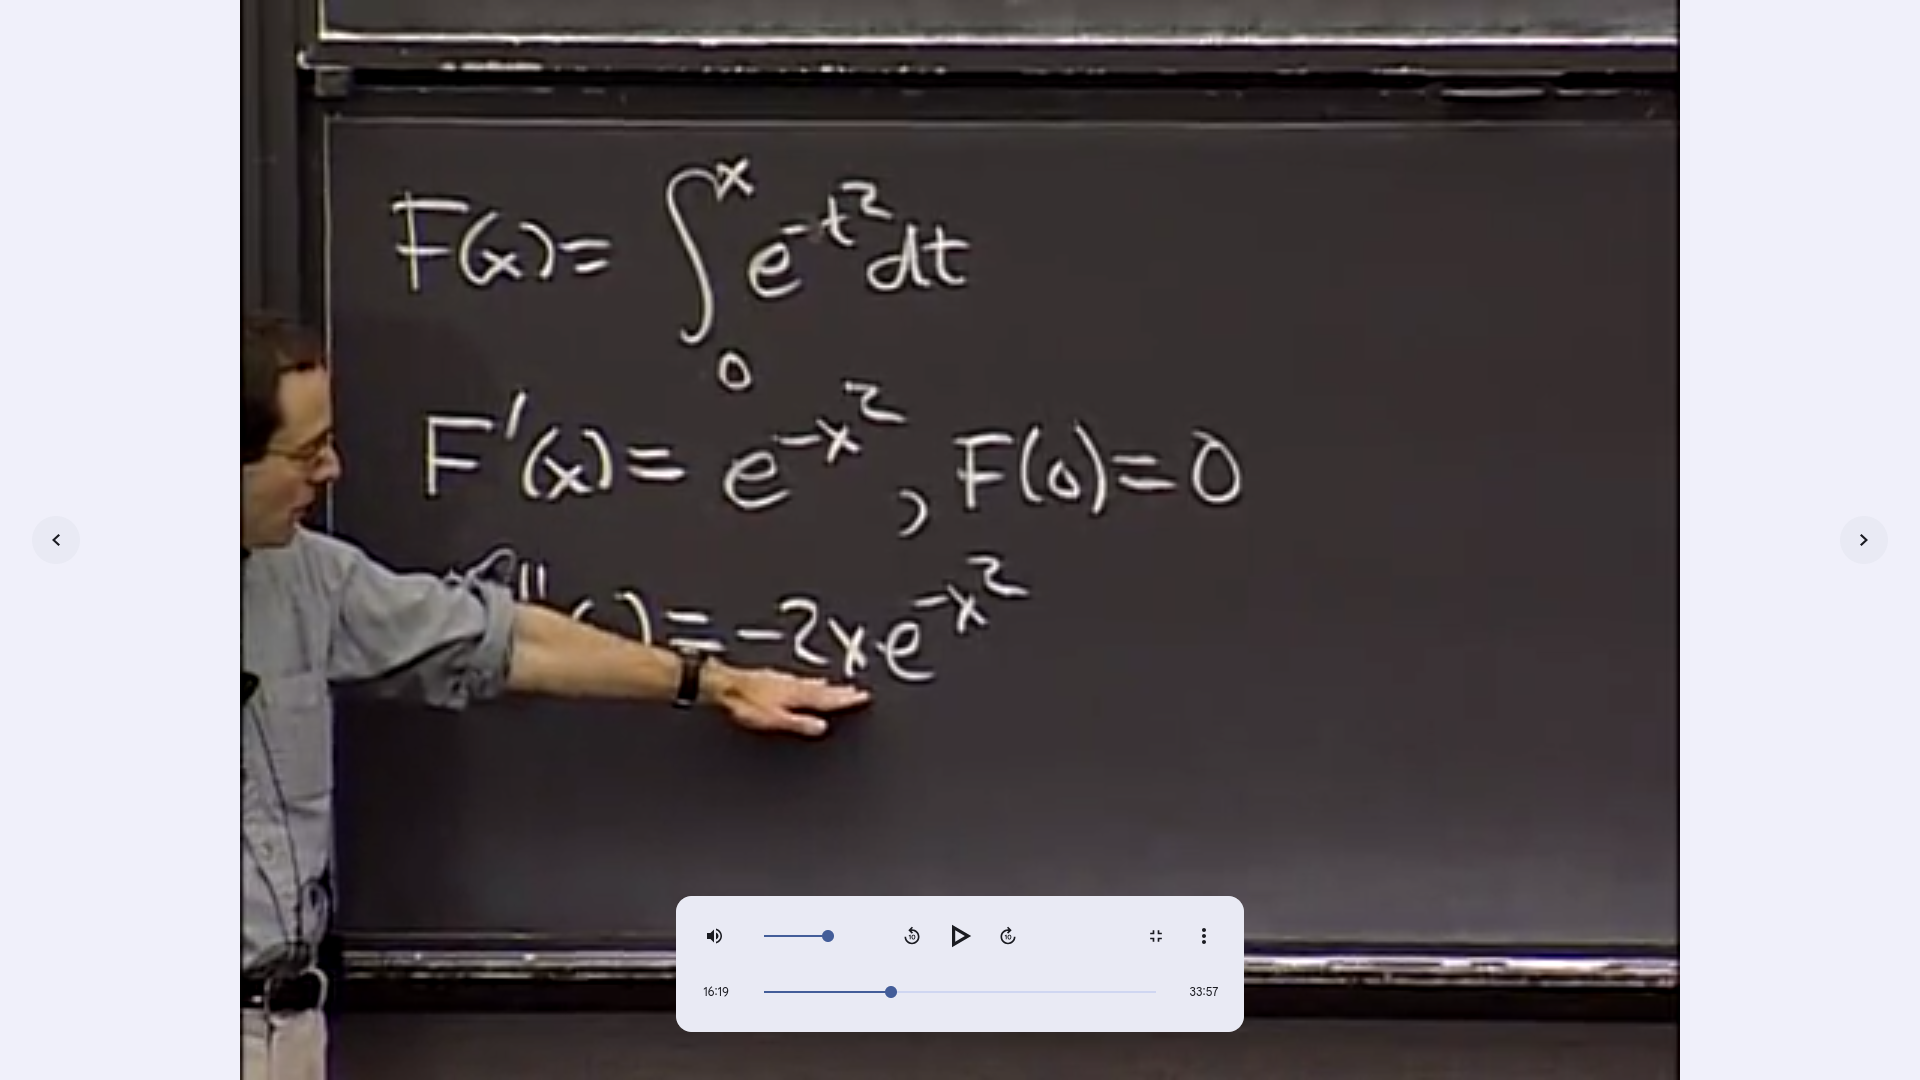 F(x) = ∫₀ˣ e^{-t²} dt
F'(x) = e^{-x²}, F(0) = 0
''( ) = -2x e^{-x²}
10
10
16:19
33:57